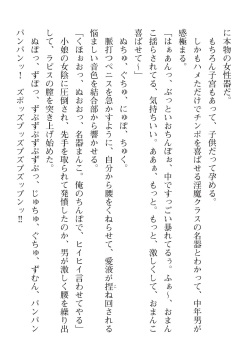 に本物の女性器だ。
もちろん子宮もあって、子供だって孕める。
しかもハメただけでチンポを喜ばせる淫魔クラスの名器とわかって、中年男が
感極まる。
「はぁあんっ、ぶっといおちんぽぉ、中ですっごい暴れてるぅ。ふぁ〜、おまん
こ揺られてる、気持ちいい。あああ、もっと。もっと、激しくして、おまんこ
喜ばせて〜」
ぬちゅ、ぐちゅ、にゅぽ、ちゅく。
脈打つペニスを急かすように、自分から腰をくねらせて、愛液が捏ね回される
悩ましい音色を結合部から響かせる。
「くほぉおっ、ぬおおっ、名器まんこ。俺のちんぽで、ヒイヒイ言わせてやる」
小娘の女陰に圧倒され、先手を取られて発憤したのか、男が激しく腰を繰り出
して、ラピスの膣を突き上げ始めた。
ぬぽっ、ずぽっ、ずぷずぷずぷずぷっ、じゅちゅ、ぐちゅ、ずむん、パンパン
パンパンッ！　ズボッズブッズブズブズップンッ！！